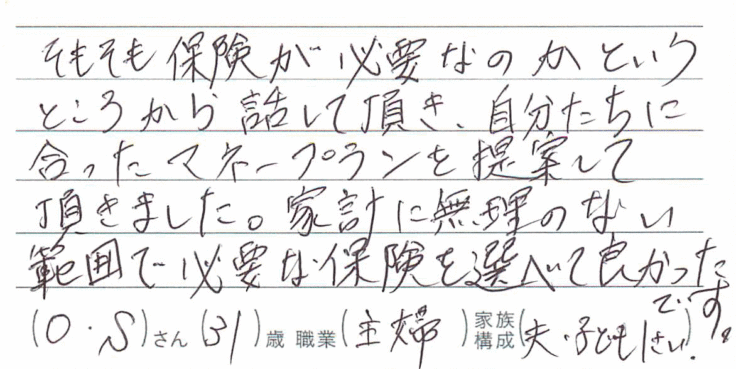 そもそも保険が必要なのかという
ところから話して頂き、自分たちに
合ったマネープランを提案して
頂きました。家計に無理のない
範囲で必要な保険を選べて良かった
です。
(O・S)さん(31)歳 職業(主婦)家族構成(夫・子ども1さい.)